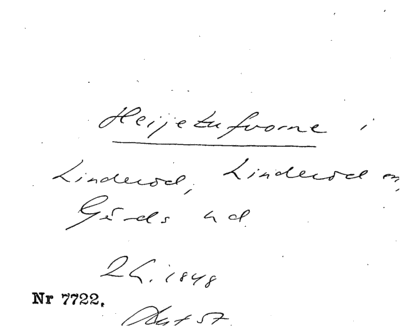 Heijetufvorne i
Linderöd, Linderöd sn,
Gärds hd
2 h. 1848
Nr 7722.